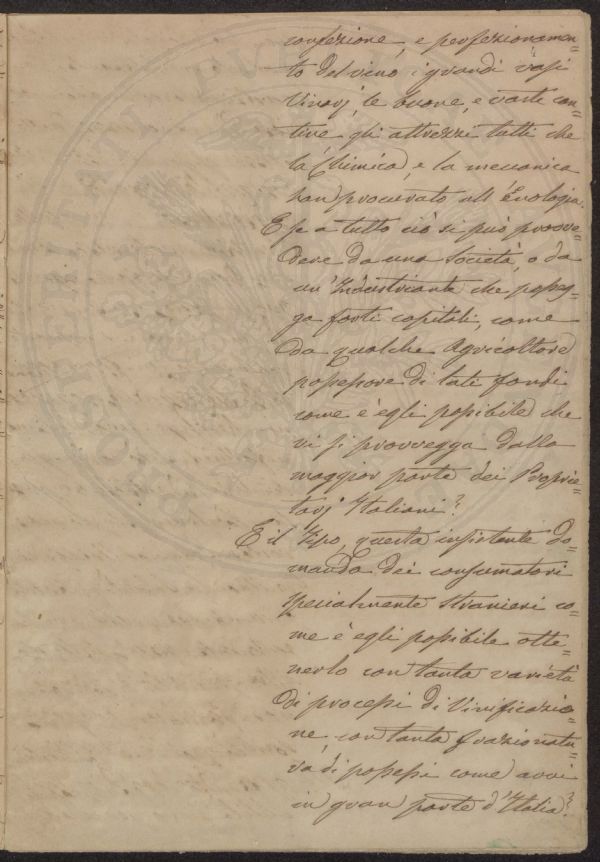 confezione, e perfezionamen=
to del vino, i grandi vasi
Vinarj, le buone, e vaste can=
tine gli attrezzi tutti che
la Chimica, e la meccanica
han procurato all'Enologia.
E se a tutto ciò si può provve=
dere da una Società, o da
un'Industriante che posseg=
ga forti capitali, come
da qualche Agricoltore
possessore di lati fondi
come è egli possibile che
vi si provvegga dalla
maggior parte dei Proprie=
tarj Italiani?
E il Tipo, questa insistente do=
manda dei consumatori
specialmente stranieri co=
me è egli possibile otte=
nerlo con tanta varietà
di processi di Vinificazio=
ne con tanta frazionatu=
ra di possessi come avvi
in gran parte d'Italia?
PROSPERITATI